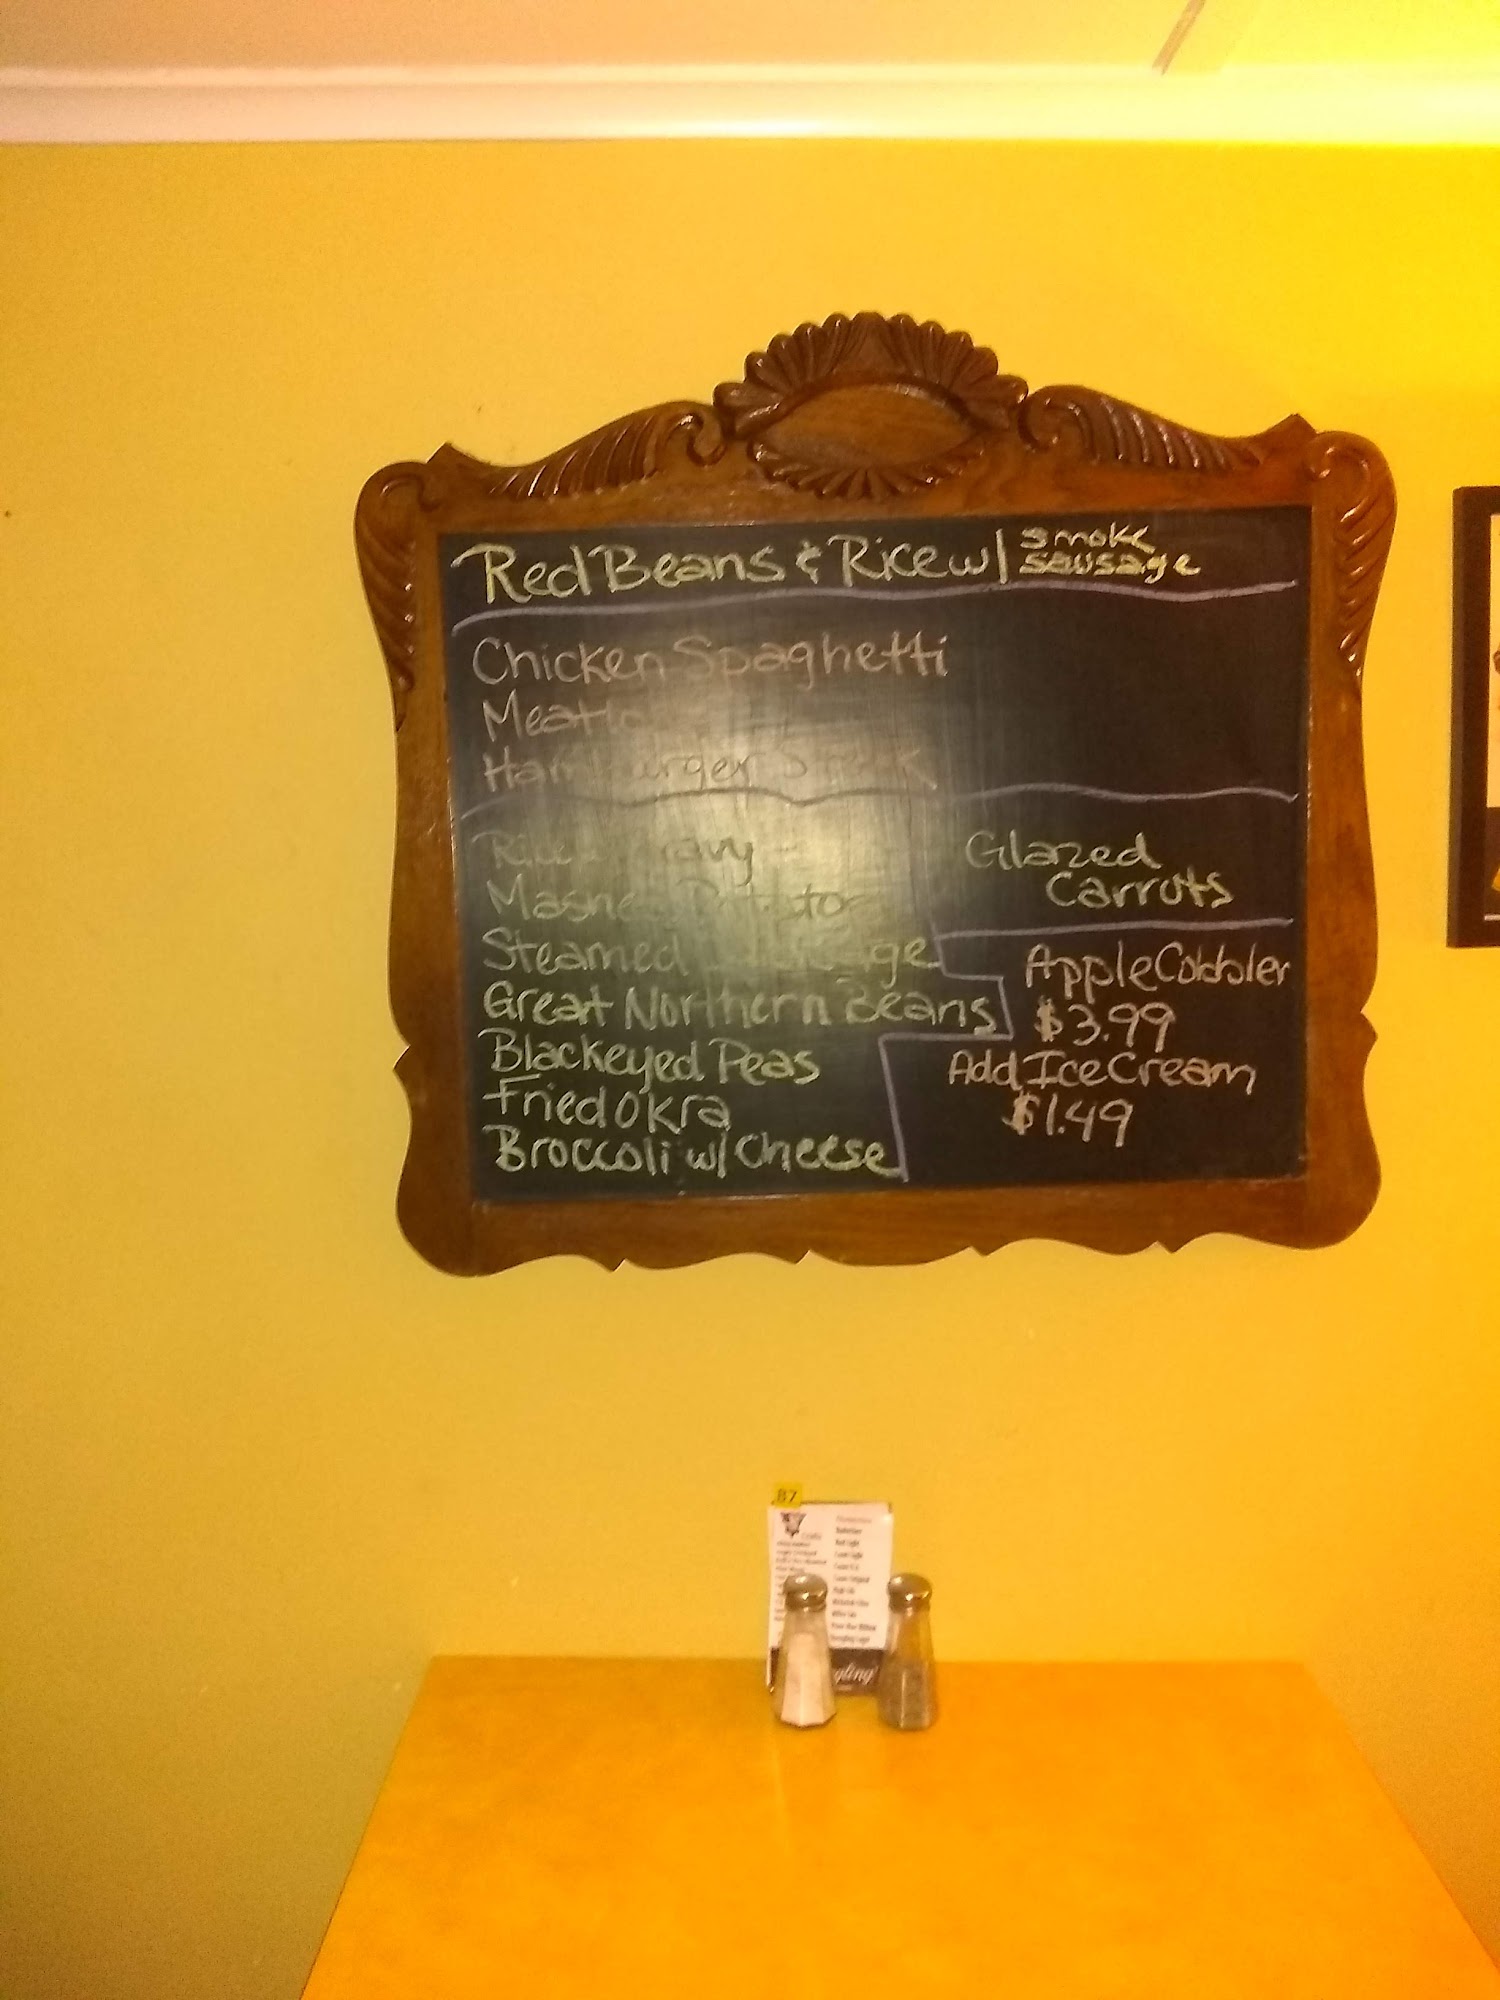 Red Beans & Rice w/ smoke
sausage
Chicken Spaghetti
Hamburger Steak
Gravy
Mashed Potatoes
Glazed
Carrots
Steamed Cabbage
Great Northern Beans
Blackeyed Peas
Fried Okra
Broccoli w/ Cheese
Apple Cobbler
$3.99
Add Ice Cream
$1.49
87